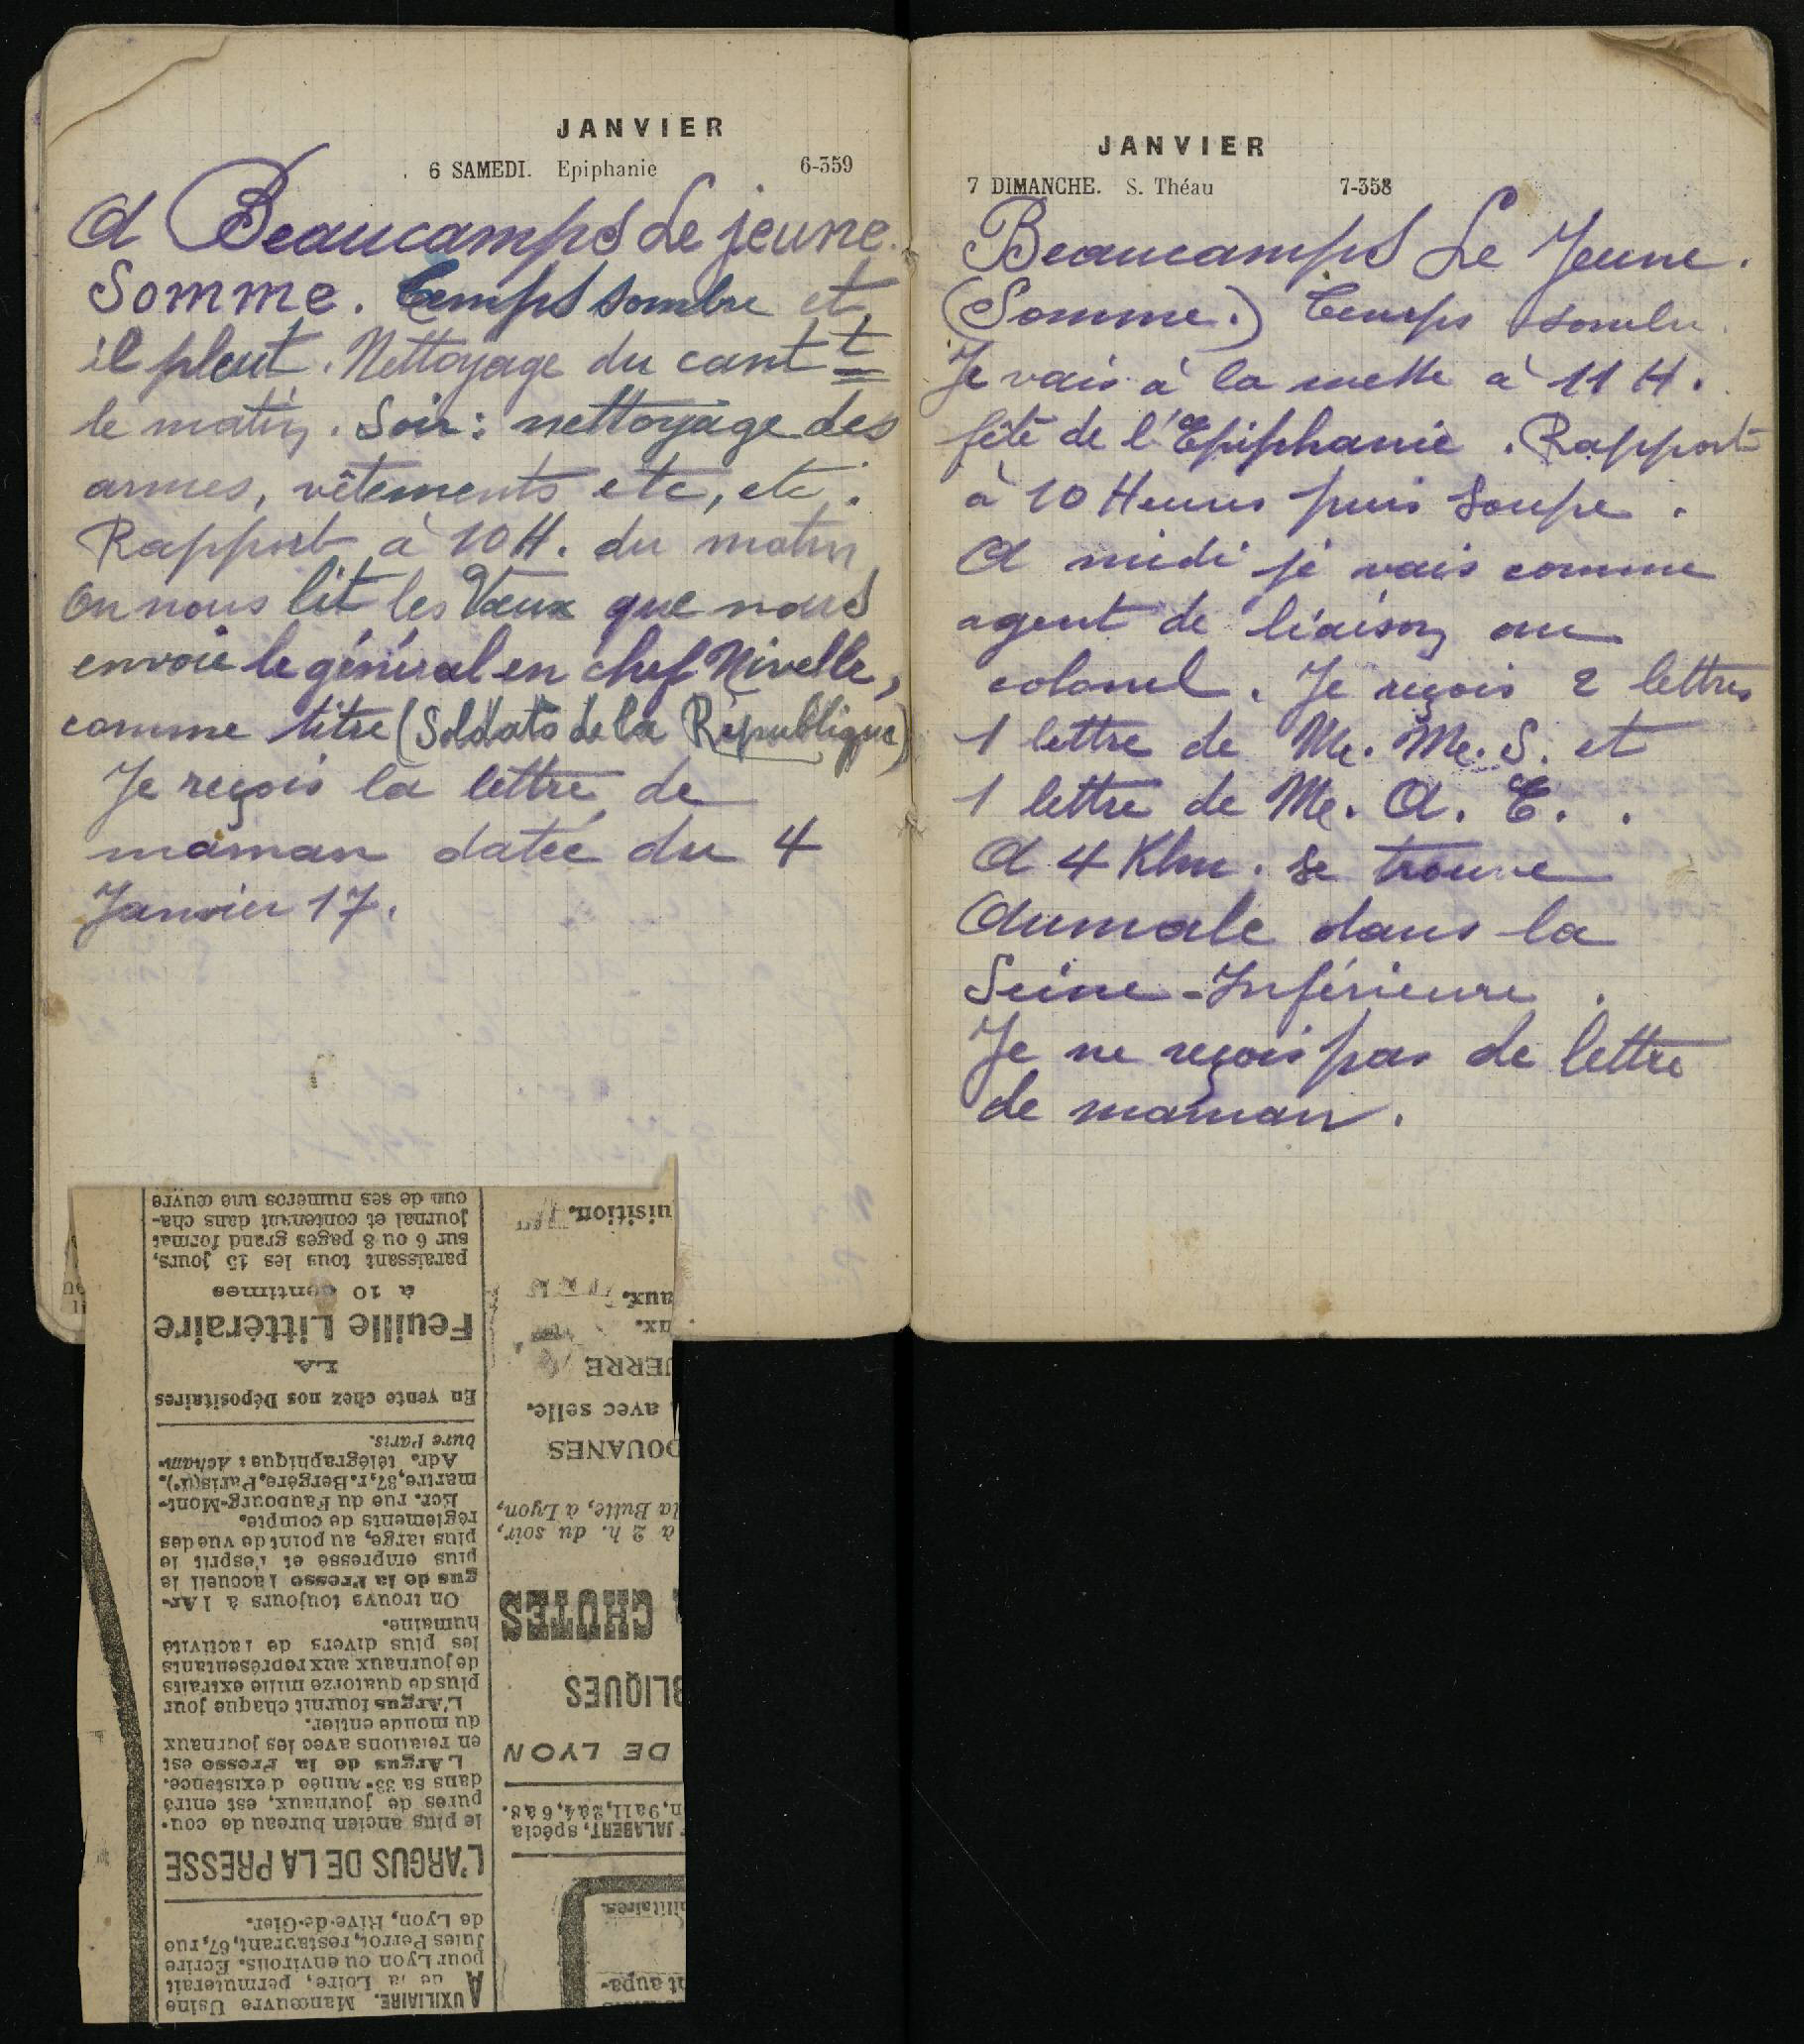 JANVIER
6 SAMEDI. Epiphanie 6-359
A Beaucamps Le jeune.
Somme. Temps sombre et
il pleut. Nettoyage du cant t
le matin. Soir : nettoyage des
armes, vêtements etc, etc.
Rapport à 10 H. du matin
On nous lit les Vœux que nous
envoie le général en chef Nivelle,
comme titre (Soldats de la République)
Je reçois la lettre de
maman datée du 4
Janvier 17.
JANVIER
7 DIMANCHE. S. Théau 7-358
Beaucamps Le Jeune.
(Somme.) Temps sombre.
Je vais à la messe à 11 H.
fête de l'Epiphanie. Rapport
à 10 Heures puis Soupe.
A midi je vais comme
agent de liaison au
colonel. Je reçois 2 lettres
1 lettre de Me. Me. S. et
1 lettre de Me. A. E. .
A 4 Klm. se trouve
Aumale dans la
Seine-Inférieure.
Je ne reçois pas de lettre
de maman.
AUXILIAIRE. Manœuvre Usine
de la Loire, permuterait
pour Lyon ou environs. Ecrire
Jules Perrot, restaurant, 67, rue
de Lyon, Rive-de-Gier.
L'ARGUS DE LA PRESSE
le plus ancien bureau de cou-
pures de journaux, est entré
dans sa 33e année d'existence.
L'Argus de la Presse est
en relations avec les journaux
du monde entier.
L'Argus fournit chaque jour
plus de quatorze mille extraits
de journaux aux représentants
les plus divers de l'activité
humaine.
On trouve toujours à l'Ar-
gus de la Presse l'accueil le
plus empressé et l'esprit le
plus large, au point de vue des
règlements de compte.
Ecr. rue du Faubourg-Mont-
martre, 37, r. Bergère, Paris (9e).
Adr. télégraphique : Acham-
bure Paris.
En vente chez nos Dépositaires
LA
Feuille Littéraire
à 10 centimes
paraissant tous les 15 jours,
sur 6 ou 8 pages grand format
journal et contenant dans cha-
cun de ses numéros une œuvre
nt aupa-
ilitaires.
JALABERT, spécia
n, 9 à 11, 2 à 4, 6 à 8.
DE LYON
BLIQUES
CHUTES
à 2 h. du soir,
la Butte, à Lyon,
DOUANES
avec selle.
UERRE
ux.
aux.
uisition.